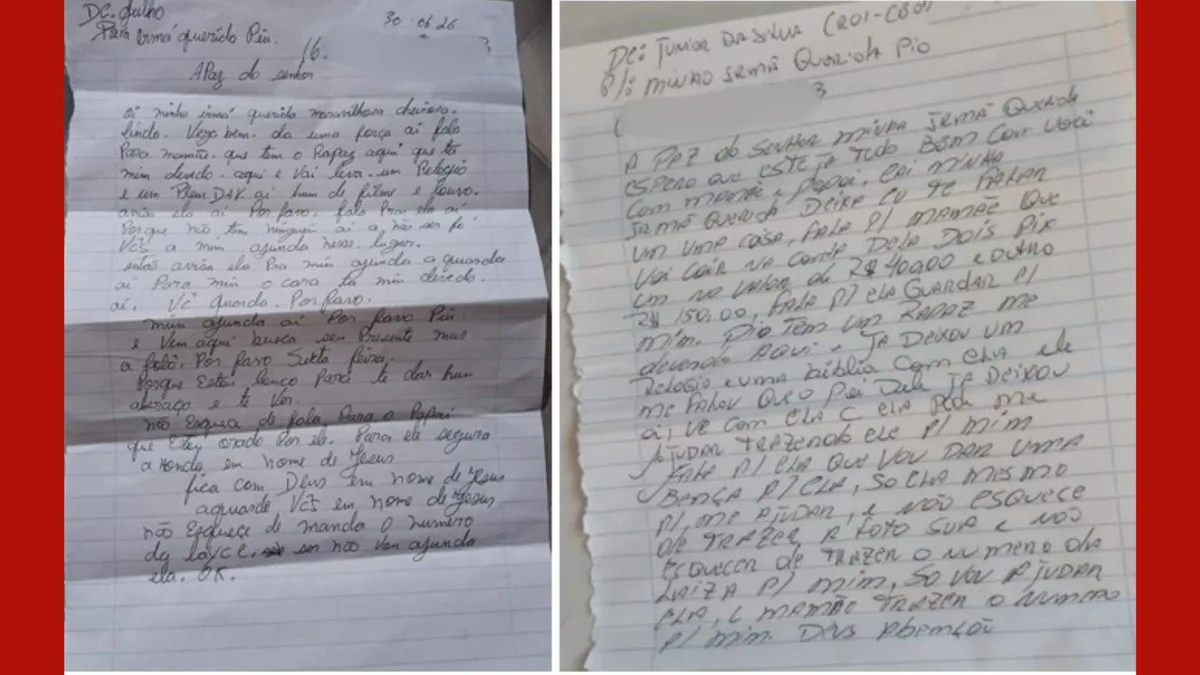 De: Julho
30 06 26
Para irmã querida Piu.
16.
A Paz do senhor
Oi minha irmã querida maravilhosa cheirosa.
linda. Vejo bem. da uma força ai fala
Para mamãe. que tem o Rapaz aqui que ta
mim devedo. aqui e vai leva. um Relogio
e um Pen DAV. ai hum de filme e louvo.
avisa ela ai Por favo. fala Pra ela ai
Porque não tem ninguém ai a não ser fó
Vcs a mim ajunda nesse lugar.
então avisa ela Pra min ajunda a guarda
ai Para min o cara ta min devedo.
ai. Vê Guarda. Por favo.
mim ajunda ai Por favo Piu.
e Vem aqui busca seu Presente mas
a Por favo Sexta feira.
Porque Estou louco Para te dar hum
abraço e te ver.
não Esqueça de fala Para o Papai
que Estou orado Por ele. Para ele segura
a Honda em nome de Jesus
fica com Deus em nome de Jesus
aguarde Vcs em nome de Jesus
não Esqueçe de manda o numero
da ser não Vou ajunda
ela. OK.
De: JUNIOR DA SILVA (R01-C80)
P/: MINAO IRMÃ QUERIDA PIO
3
A PAZ do SENHOR MINHA IRMÃ QUERIDA
ESPERO QUE ESTEJA TUDO BEM COM VOCÊ
COM MAMÃE e PAPAI, EAI MINHA
IRMÃ QUERIDA DEIXA EU TE FALAR
UM UMA COISA, FALA P/ MAMÃE QUE
VAI CAIR NA CONTA DELA DOIS PIX
UM NO VALOR DE R$ 400,00 e OUTRO
R$ 150,00, FALA P/ ELA GUARDAR P/
MIM. PIO TEM UM RAPAZ ME
devendo AQUI e JA DEIXOU UM
RELOGIO e UMA bIbLIA COM ELA ele
ME FALOU QUE O PAI DELE JA DEIXOU
ai, VE COM ELA C ELA PODE ME
AJUDAR TRAZENDO ELE P/ MIM
FALA P/ ELA QUE VOU DAR UMA
BENÇA P/ ELA, SO ELA MESMO
P/ ME AJUDAR, e NÃO ESQUECE
de TRAZER A FOTO SUA e NÃO
ESQUECER de TRAZER O NUMERO DA
LAIZA P/ MIM, SO VOU AJUDAR
ELA, C MAMÃE TRAZER O NUMERO
P/ MIM. DEUS AbEMÇÕE